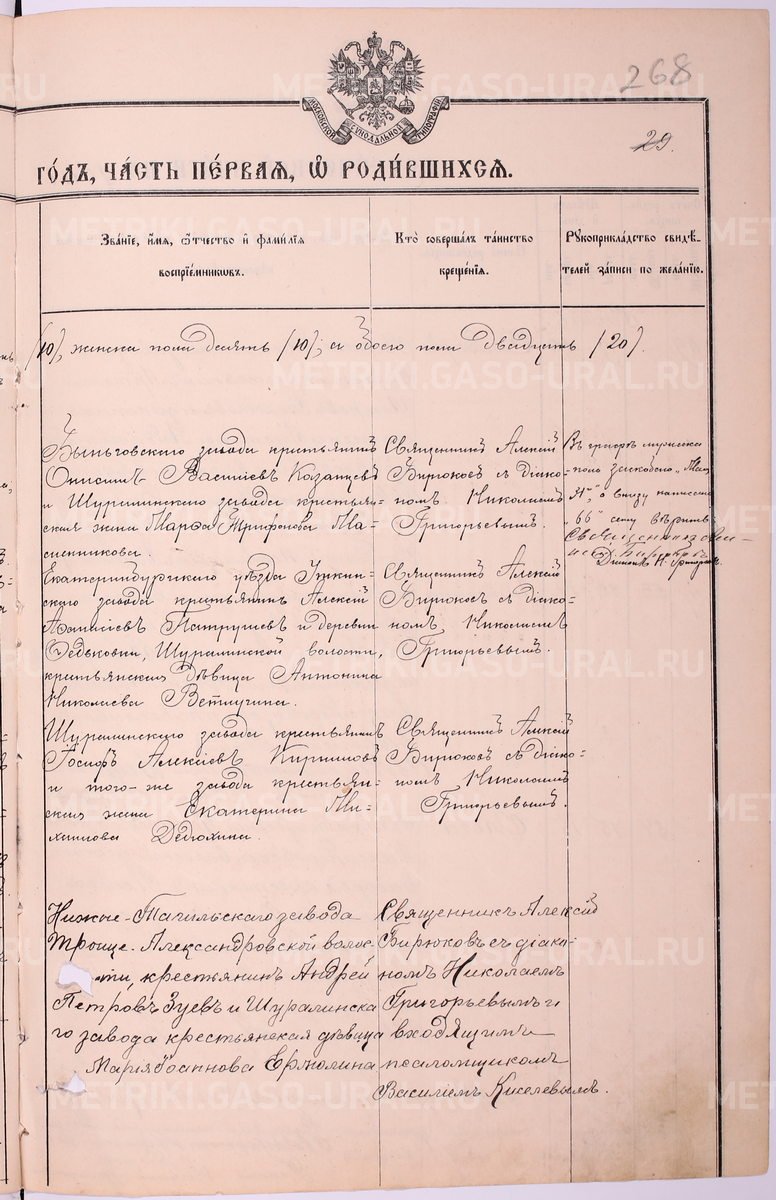 268
МОСКОВСКОЙ СѴНОДАЛЬНОЙ ТИПОГРАФІИ
29.
ГО́ДЪ, ЧА́СТЬ ПЕ́РВАЯ, Ѡ҆ РОДИ́ВШИХСЯ.
Зва́нїе, и҆́мя, ѻ҆́тчество и҆ фами́лїя
воспрїе́мникѡвъ.
Кто̀ соверша́лъ та́инство
креще́нїя.
Рꙋкоприкла́дство свидѣ́-
телей за́писи по жела́нїю.
/10/, женска пола десять /10/, а обоего пола двадцать /20/.
Быньговскаго завода крестьянинъ
Василіевъ Казанцевъ
и Шуралинскаго завода крестьян-
ская жена Марѳа Трифонова Ма-
сленникова.
Священникъ Алексій
Бирюковъ съ діако-
номъ Николаемъ
Григорьевымъ.
Въ графѣ мужска
пола
а внизу написано
"66" сему вѣрить
Священникъ
Бирюковъ
Діаконъ Н. Григорьевъ.
Екатеринбургскаго уѣзда Уткин-
скаго завода крестьянинъ Алексій
Патрушевъ и деревни
Ѳедьковки, Шуралинской волости,
крестьянская дѣвица Антонина
Николаева Ветлугина.
Священникъ Алексій
Бирюковъ съ діако-
номъ Николаемъ
Григорьевымъ.
Шуралинскаго завода крестьянинъ
Іосифъ Алексіевъ Кирилловъ
и того-же завода крестьян-
ская жена Екатерина Ми-
хаилова Дедюхина.
Священникъ Алексій
Бирюковъ съ діако-
номъ Николаемъ
Григорьевымъ.
Нижне-Тагильскаго завода
Троице-Александровской волос-
ти, крестьянинъ Андрей
Петровъ Зуевъ и Шуралинска
го завода крестьянская дѣвица
Марія Ермолина
Священникъ Алексій
Бирюковъ съ діако-
номъ Николаемъ
Григорьевымъ и
входящимъ
псаломщикомъ
Василіемъ Киселевымъ.
METRIKI.GASO-URAL.RU